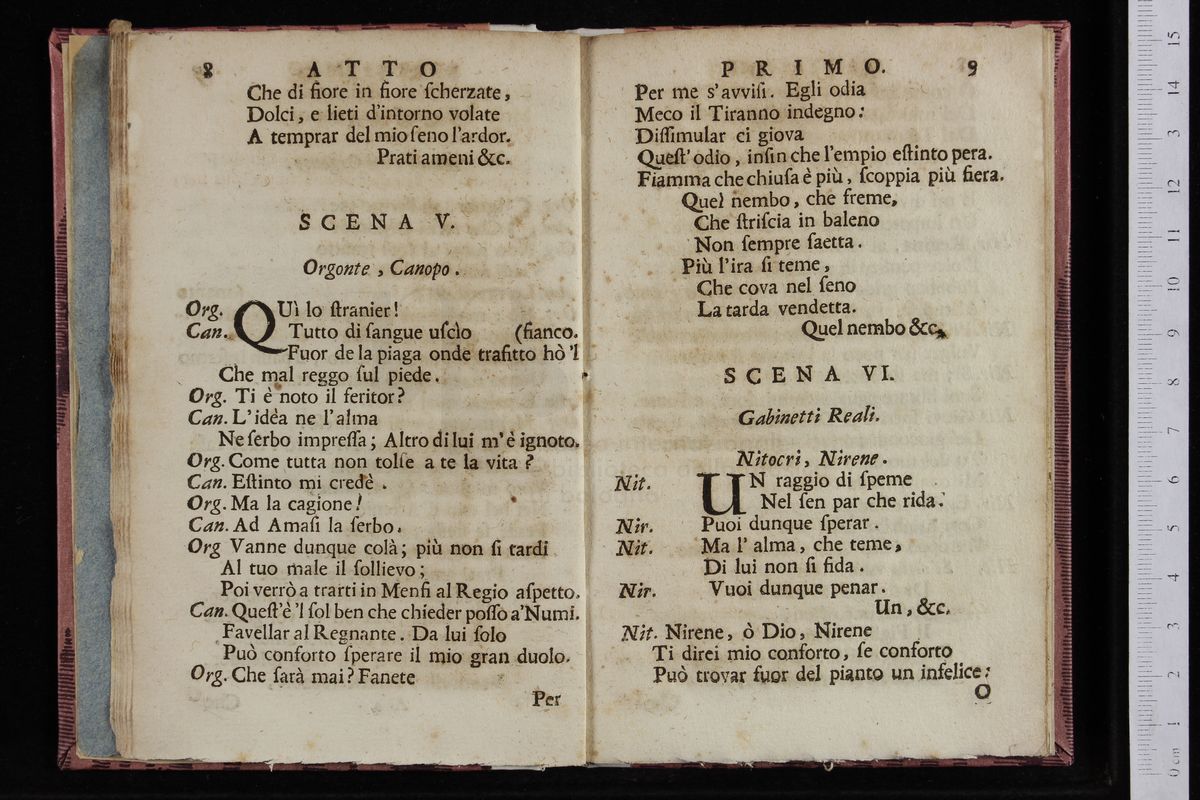 8 ATTO
Che di fiore in fiore ſcherzate,
Dolci, e lieti d'intorno volate
A temprar del mio ſeno l'ardor.
Prati ameni &c.
SCENA V.
Orgonte, Canopo.
Org. QUì lo ſtranier!
Can. Tutto di ſangue uſcìo (fianco.
Fuor de la piaga onde trafitto hò 'l
Che mal reggo ſul piede.
Org. Ti è noto il feritor?
Can. L'idèa ne l'alma
Ne ſerbo impreſſa; Altro di lui m'è ignoto.
Org. Come tutta non tolſe a te la vita?
Can. Eſtinto mi credè.
Org. Ma la cagione!
Can. Ad Amaſi la ſerbo.
Org Vanne dunque colà; più non ſi tardi
Al tuo male il ſollievo;
Poi verrò a trarti in Menfi al Regio aſpetto.
Can. Queſt'è 'l ſol ben che chieder poſſo a'Numi.
Favellar al Regnante. Da lui ſolo
Può conforto ſperare il mio gran duolo.
Org. Che ſarà mai? Fanete
Per
PRIMO. 9
Per me s'avviſi. Egli odia
Meco il Tiranno indegno:
Diſſimular ci giova
Queſt'odio, inſin che l'empio eſtinto pera.
Fiamma che chiuſa è più, ſcoppia più fiera.
Quel nembo, che freme,
Che ſtriſcia in baleno
Non ſempre ſaetta.
Più l'ira ſi teme,
Che cova nel ſeno
La tarda vendetta.
Quel nembo &c.
SCENA VI.
Gabinetti Reali.
Nitocri, Nirene.
Nit. UN raggio di ſpeme
Nel ſen par che rida.
Nir. Puoi dunque ſperar.
Nit. Ma l'alma, che teme,
Di lui non ſi fida.
Nir. Vuoi dunque penar.
Un, &c.
Nit. Nirene, ò Dio, Nirene
Ti direi mio conforto, ſe conforto
Può trovar fuor del pianto un infelice:
O
0 cm 1 2 3 4 5 6 7 8 9 10 11 12 13 14 15